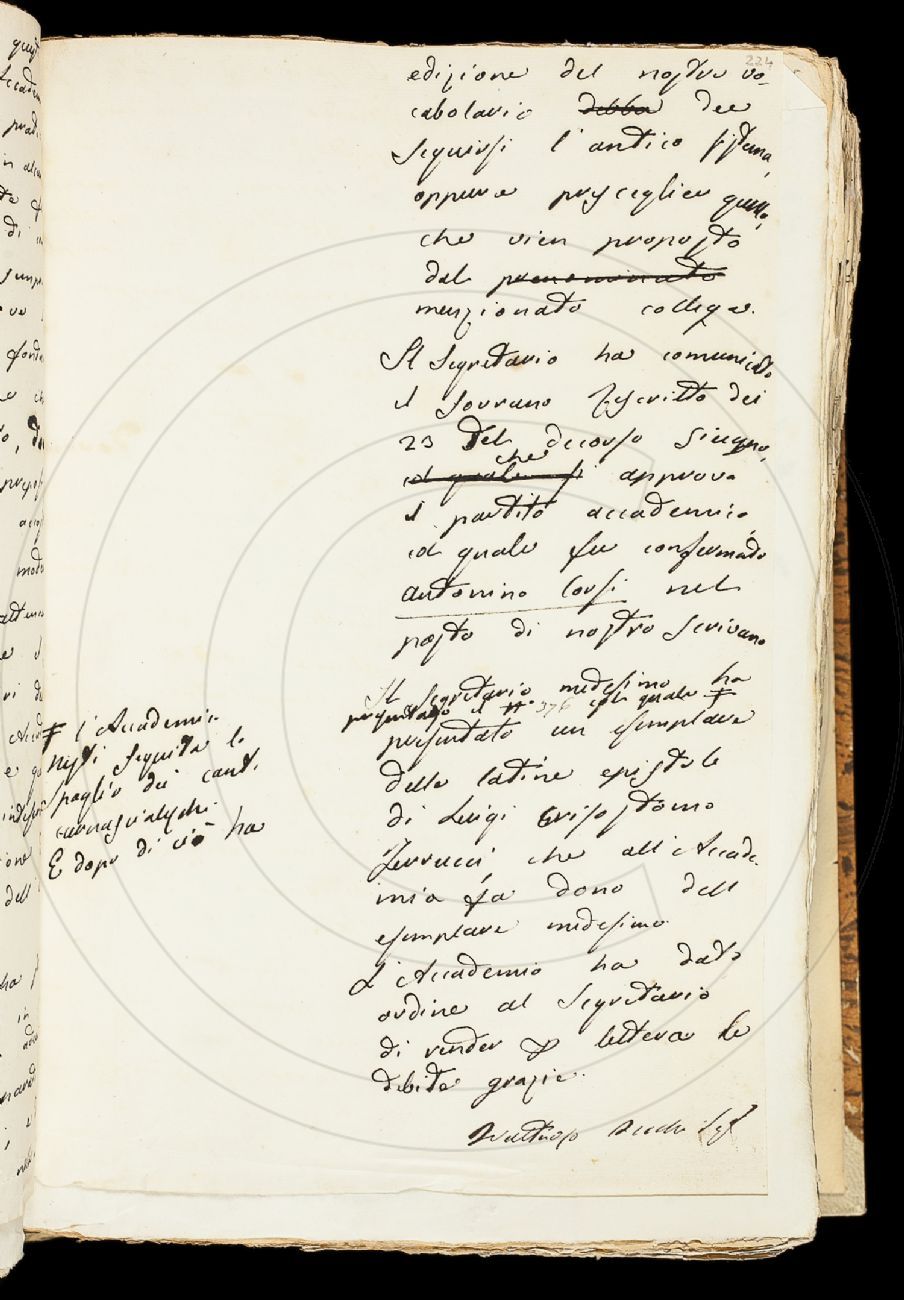 224
edizione del nostro vo-
cabolario debba dee
seguirsi l'antico sistema,
oppure prescegliere quello,
che vien proposto
dal prenominato
menzionato collega.
Il Segretario ha comunicato
il Sovrano Rescritto dei
23 del decorso Giugno,
che
col quale si approva
il partito accademico,
col quale fu confermato
Antonino Corsi nel
posto di nostro Scrivano
Il Segretario medesimo ha
presentato il n.° 376 col quale
presentato un esemplare
delle latine epistole
di Luigi Crisostomo
Ferrucci, che all'Accade-
mia fa dono dell
esemplare medesimo
L'Accademia ha dato
ordine al Segretario
di render per lettera le
debite grazie.
Segr
l'Accademia
seguita lo
spoglio dei canti
carnascialeschi.
E dopo di ciò ha